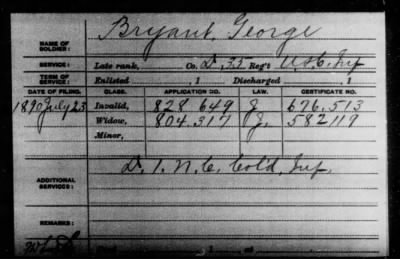 Bryant, George
NAME OF SOLDIER:
SERVICE: Late rank, Co. D, 35 Reg't U.S.C. Inf
TERM OF SERVICE: Enlisted , 1 Discharged , 1
DATE OF FILING. CLASS. APPLICATION NO. LAW. CERTIFICATE NO.
1890 July 23 Invalid, 828 649 J 676.513
Widow, 804.317 J. 582119
Minor,
D. 1. N.C. Cold. Inf.
ADDITIONAL SERVICES:
REMARKS: